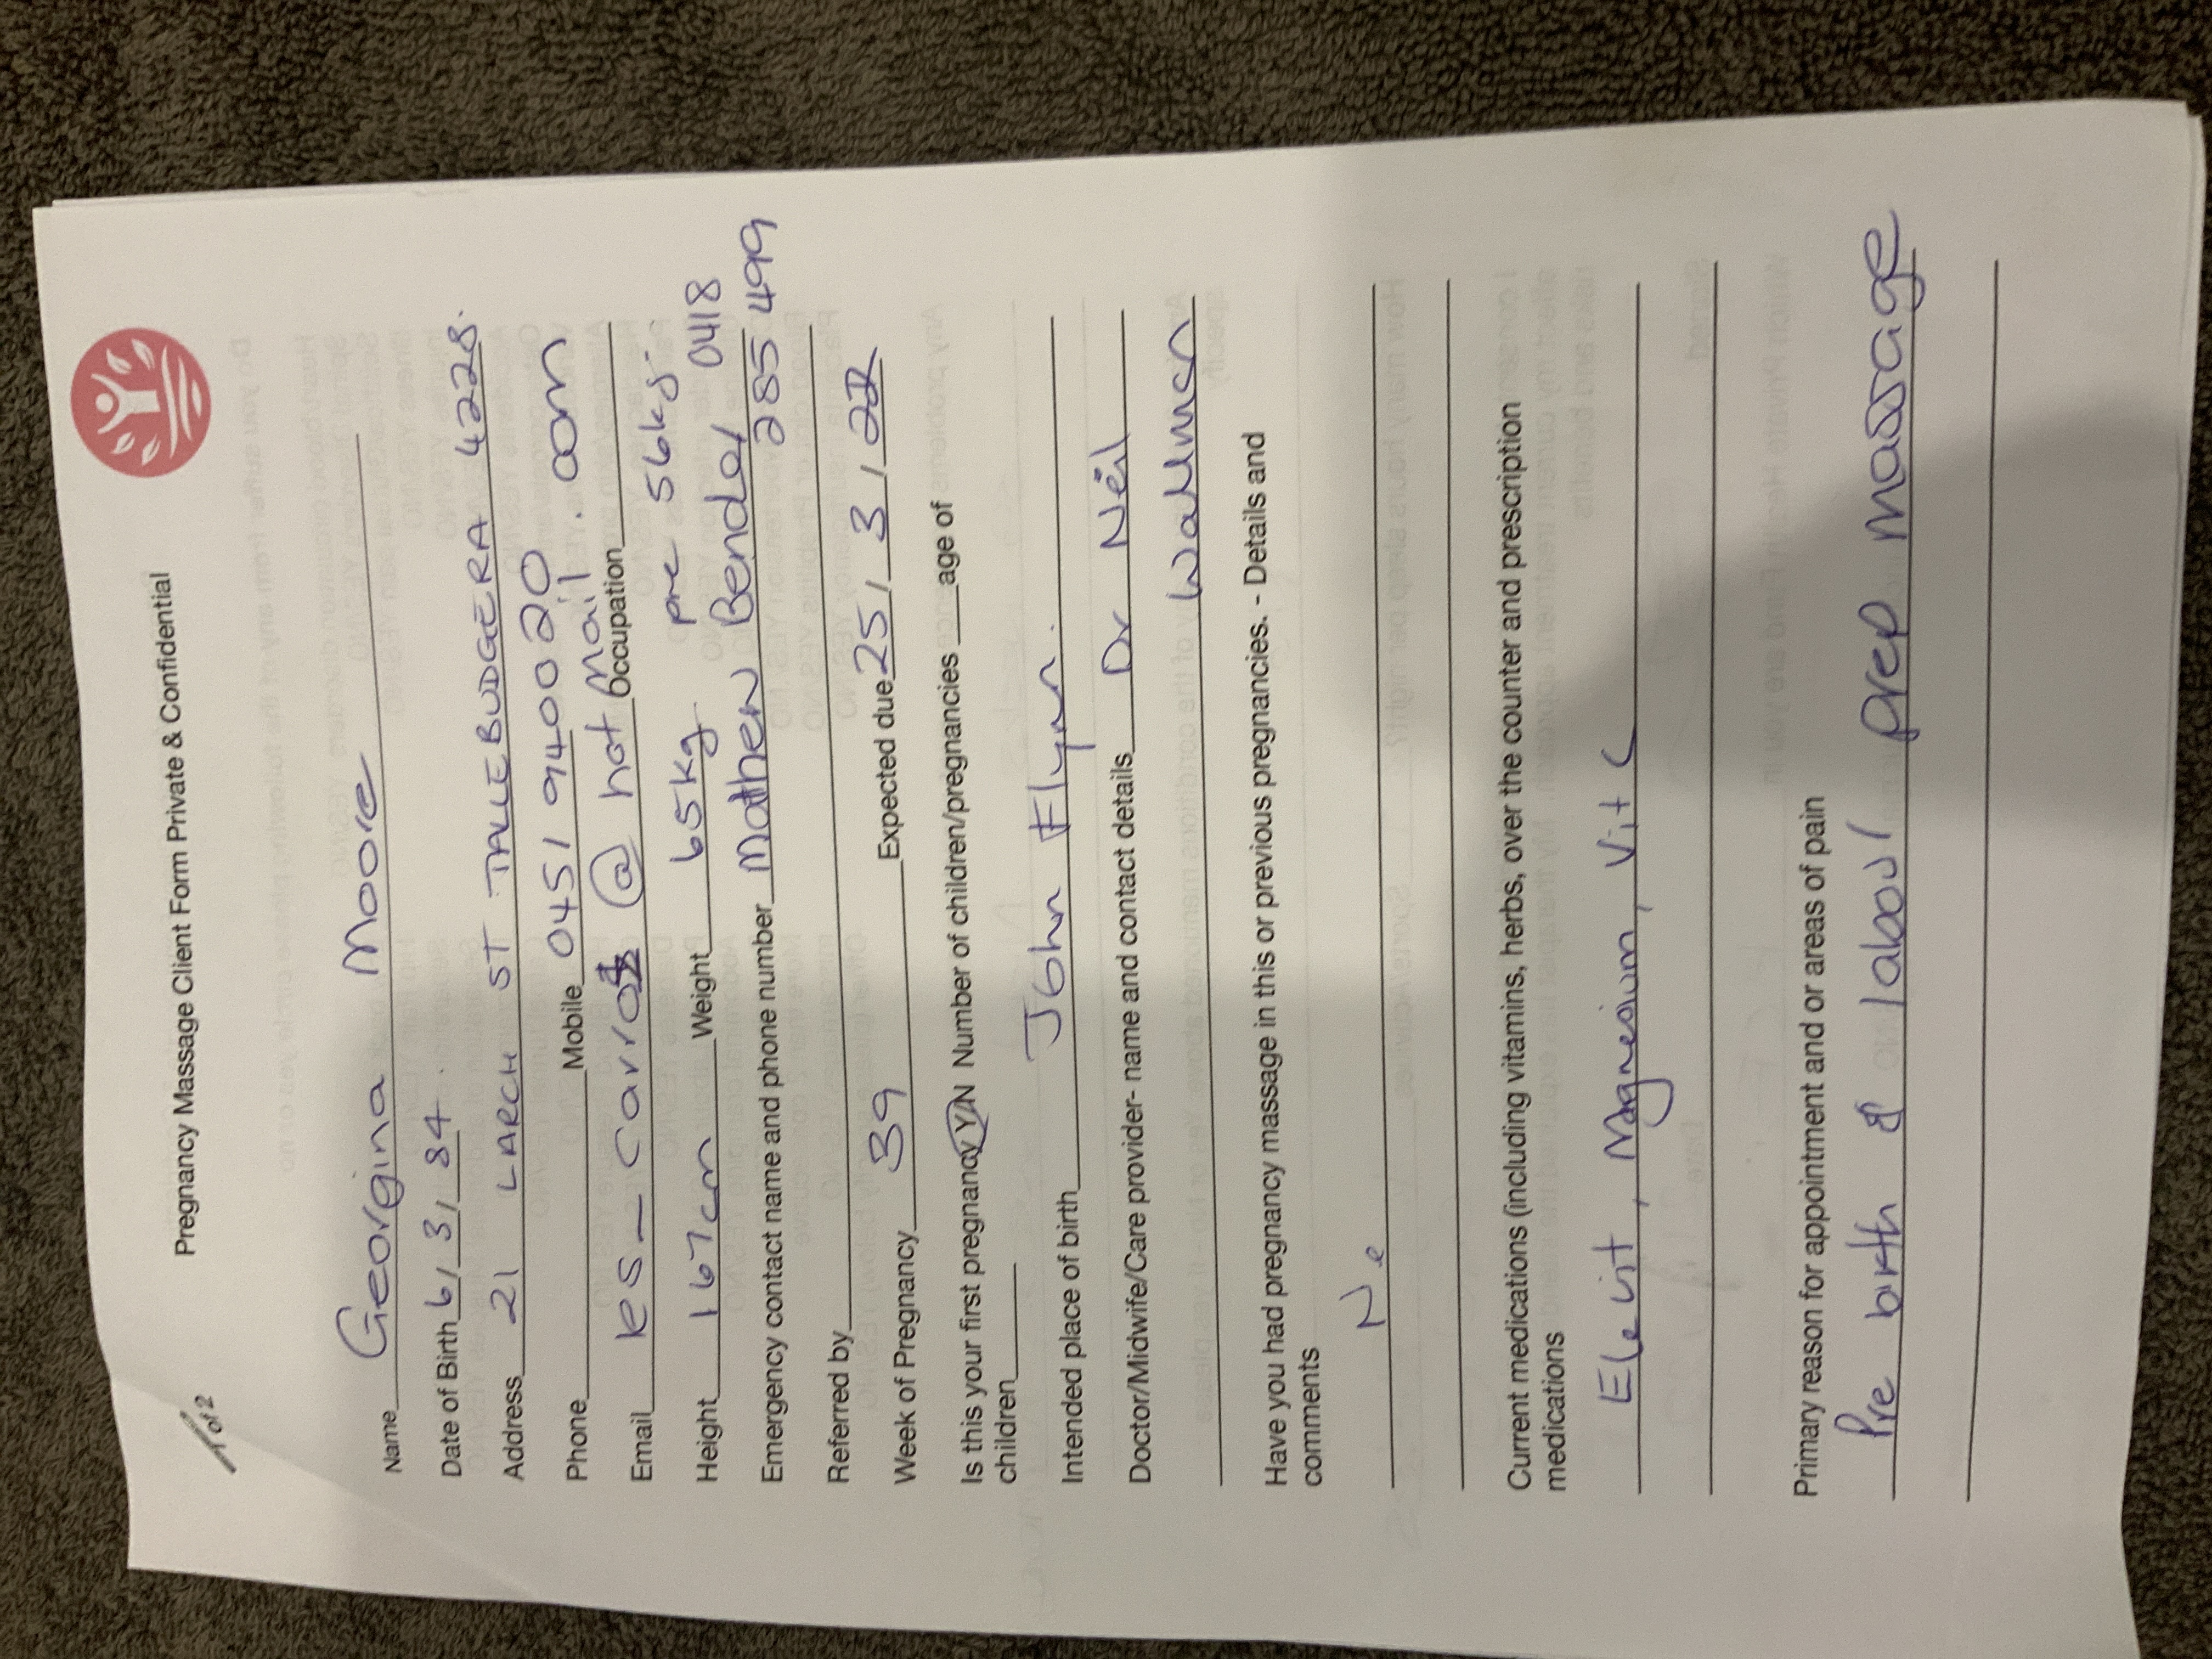 1 of 2
Pregnancy Massage Client Form Private & Confidential
Name Georgina Moore
Date of Birth 6/3/84.
Address 21 LARCH ST TALLEBUDGERA 4228.
Phone Mobile 0451 940020
Email @ hotmail.com Occupation
Height 167cm Weight 65kg pre 56kgs
Emergency contact name and phone number Mathew Bender 0418
285499
Referred by
Week of Pregnancy 39 Expected due 25/3/22
Is this your first pregnancy Y/N Number of children/pregnancies age of
children
Intended place of birth John Flynn.
Doctor/Midwife/Care provider- name and contact details Dr Neil
Have you had pregnancy massage in this or previous pregnancies. - Details and
comments
No
Current medications (including vitamins, herbs, over the counter and prescription
medications
Elevit, Magnesium, Vit C
Primary reason for appointment and or areas of pain
Pre birth & labour prep massage